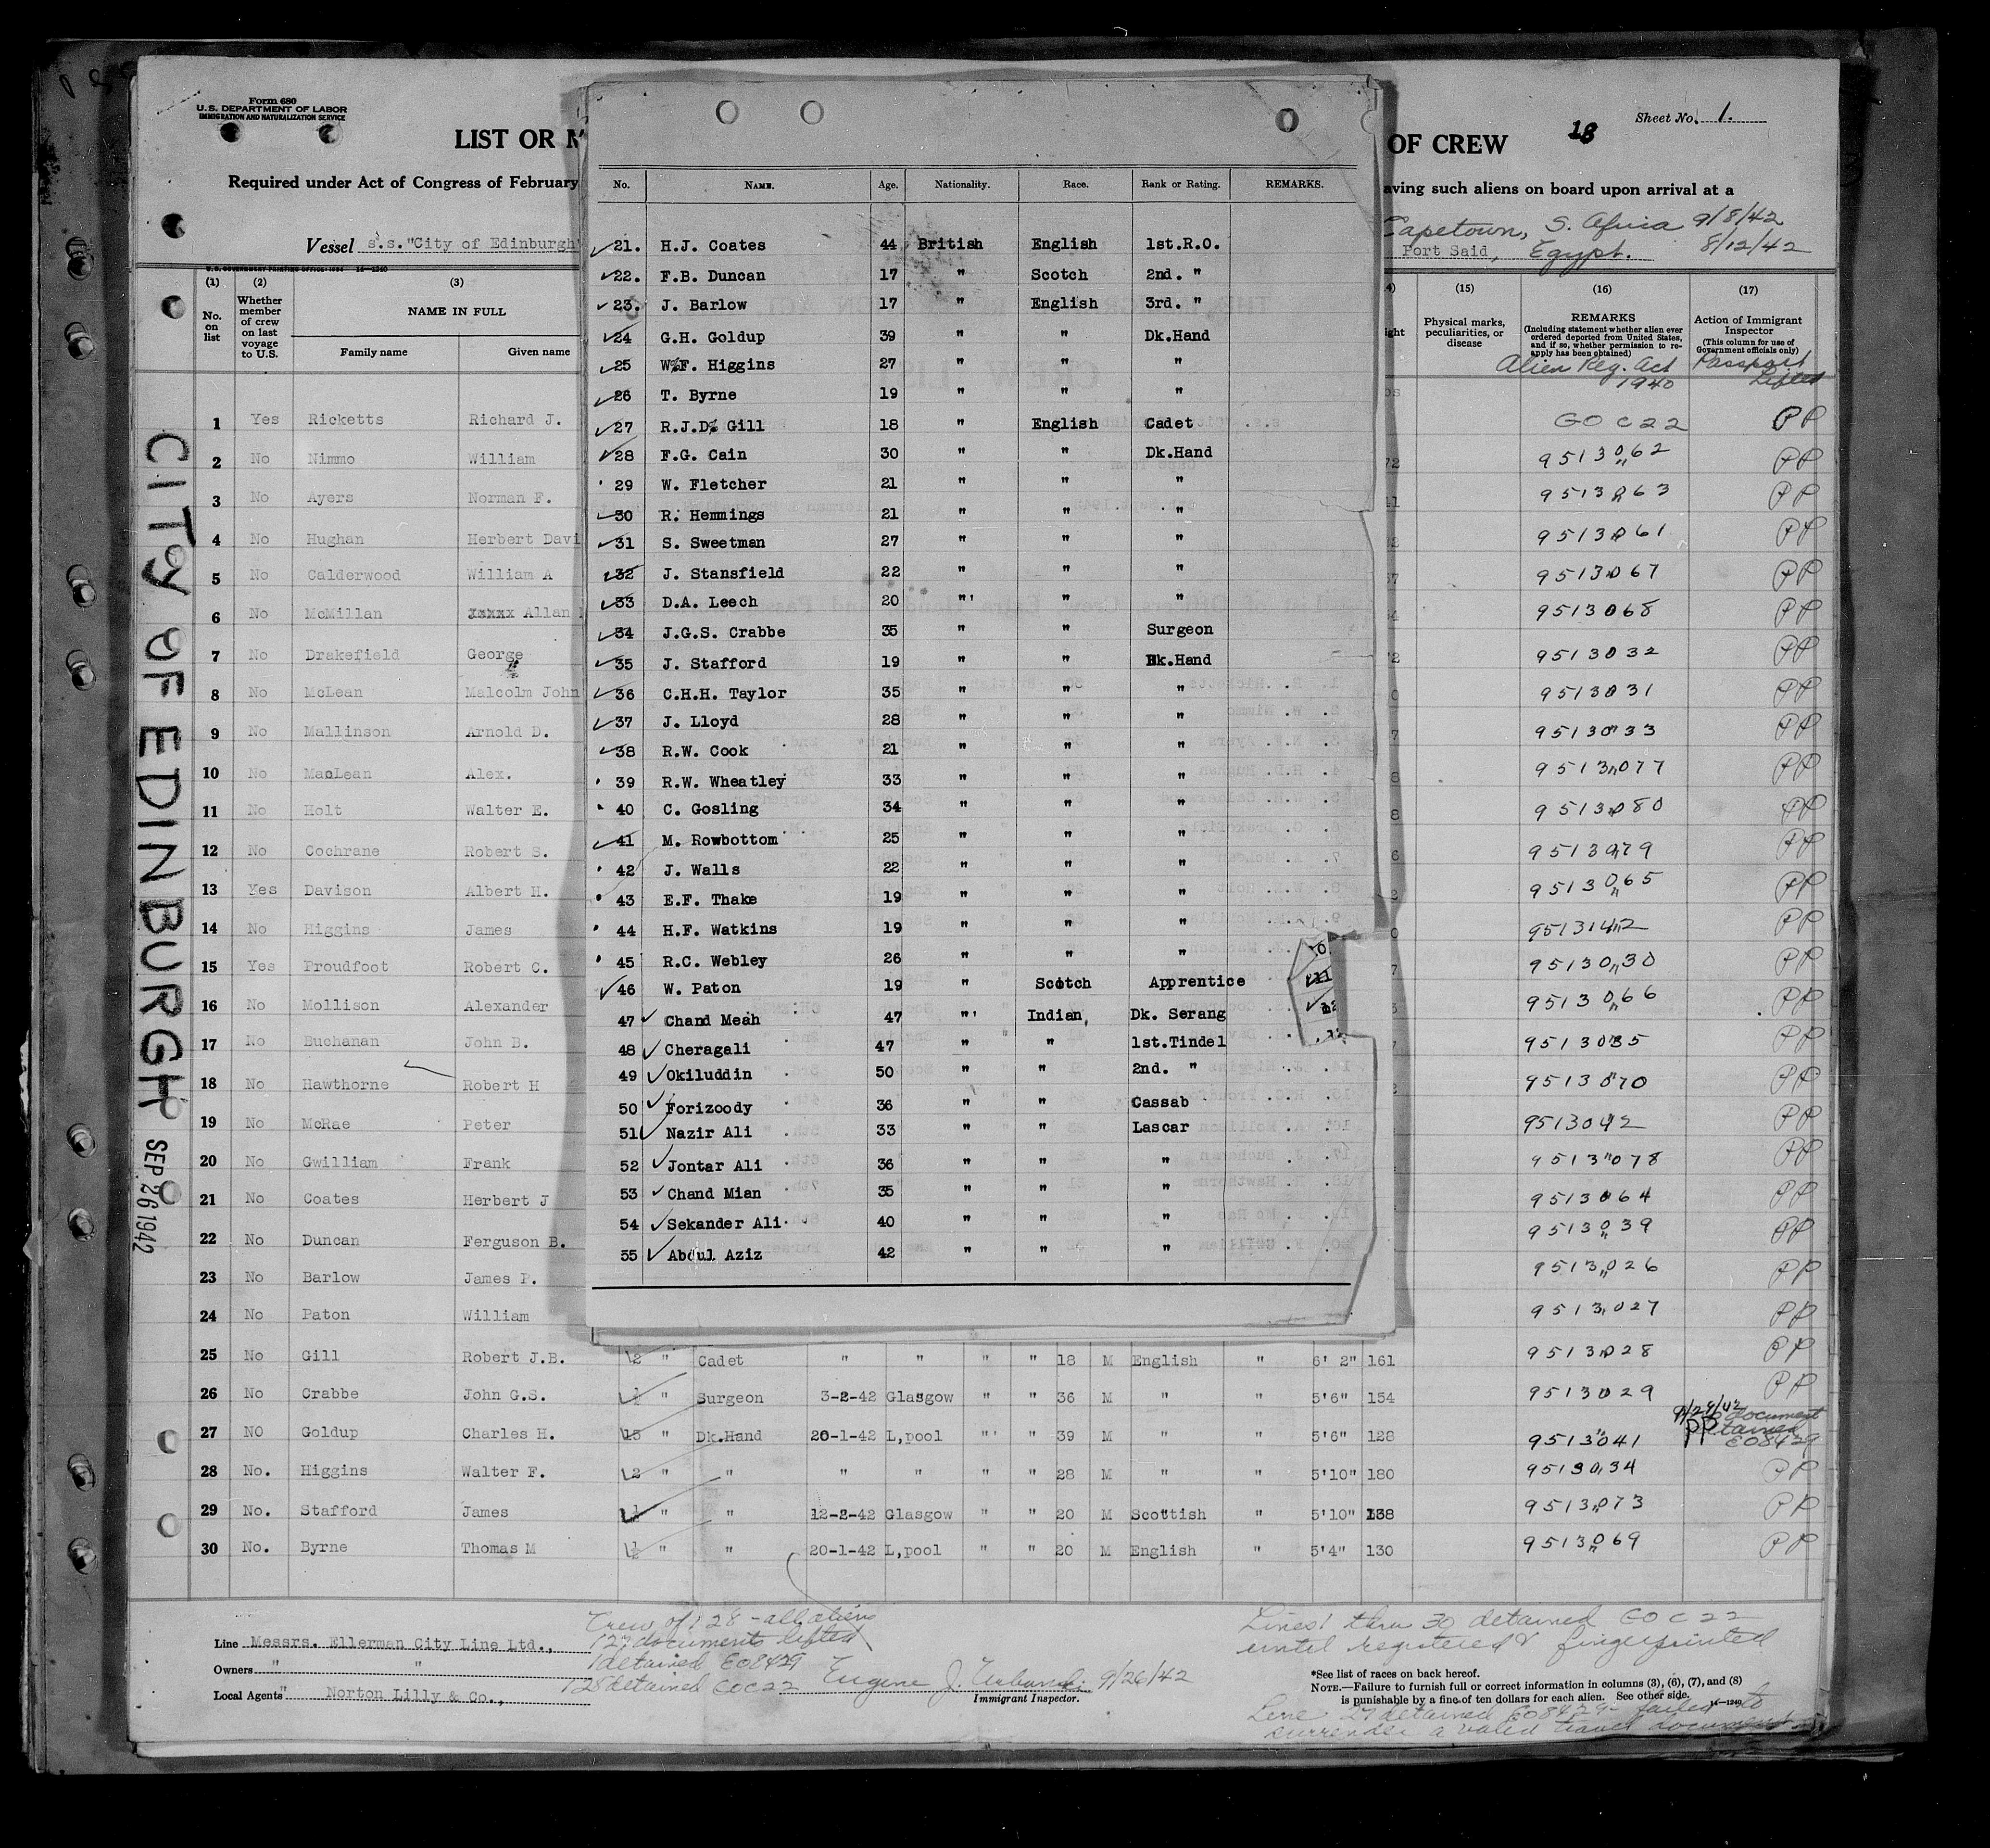 Form 680
U.S. DEPARTMENT OF LABOR
IMMIGRATION AND NATURALIZATION SERVICE
LIST OR M
OF CREW
18
Sheet No. 1.
Required under Act of Congress of February
aving such aliens on board upon arrival at a
Vessel s.s."City of Edinburgh"
Capetown, S. Africa 9/8/42
Port Said, Egypt. 8/12/42
U.S. GOVERNMENT PRINTING OFFICE: 1934 14—1240
(1) (2) (3)
No. on list
Whether member of crew on last voyage to U.S.
NAME IN FULL
Family name Given name
4) (15) (16) (17)
ight
Physical marks, peculiarities, or disease
REMARKS
(Including statement whether alien ever ordered deported from United States, and if so, whether permission to reapply has been obtained)
Action of Immigrant Inspector
(This column for use of Government officials only)
Alien Reg. Act 1940
Passport Lifted
CITY OF EDINBURGH
SEP 26 1942
1 Yes Ricketts Richard J. GO C 22 PP
2 No Nimmo William 9513062 PP
3 No Ayers Norman F. 9513063 PP
4 No Hughan Herbert Davi 9513061 PP
5 No Calderwood William A 9513067 PP
6 No McMillan xxxxx Allan 9513068 PP
7 No Drakefield George 9513032 PP
8 No McLean Malcolm John 9513031 PP
9 No Mallinson Arnold D. 9513033 PP
10 No MacLean Alex. 9513077 PP
11 No Holt Walter E. 9513080 PP
12 No Cochrane Robert S. 9513079 PP
13 Yes Davison Albert H. 9513065 PP
14 No Higgins James 9513142 PP
15 Yes Proudfoot Robert C. 9513030 PP
16 No Mollison Alexander 9513066 PP
17 No Buchanan John B. 9513035 PP
18 No Hawthorne Robert H 9513070 PP
19 No McRae Peter 9513042 PP
20 No Gwilliam Frank 9513078 PP
21 No Coates Herbert J 9513064 PP
22 No Duncan Ferguson B. 9513039 PP
23 No Barlow James P. 9513026 PP
24 No Paton William 9513027 PP
25 No Gill Robert J.B. 2 " Cadet " " " " 18 M English " 6' 2" 161 9513028 PP
26 No Crabbe John G.S. 1 " Surgeon 3-2-42 Glasgow " " 36 M " " 5'6" 154 9513029 PP
27 NO Goldup Charles H. 15 " Dk.Hand 20-1-42 L,pool " " 39 M " " 5'6" 128 9513041 PP
9/29/42 document detained E08429
28 No. Higgins Walter F. 2 " " " " " " 28 M " " 5'10" 180 9513034 PP
29 No. Stafford James 1 " " 12-2-42 Glasgow " " 20 M Scottish " 5'10" 138 9513073 PP
30 No. Byrne Thomas M 1 " " 20-1-42 L,pool " " 20 M English " 5'4" 130 9513069 PP
No. NAME. Age. Nationality. Race. Rank or Rating. REMARKS.
21. H.J. Coates 44 British English 1st.R.O.
22. F.B. Duncan 17 " Scotch 2nd. "
23. J. Barlow 17 " English 3rd. "
24 G.H. Goldup 39 " " Dk.Hand
25 W.F. Higgins 27 " " "
26 T. Byrne 19 " " "
27 R.J.D. Gill 18 " English Cadet
28 F.G. Cain 30 " " Dk.Hand
29 W. Fletcher 21 " " "
30 R. Hemmings 21 " " "
31 S. Sweetman 27 " " "
32 J. Stansfield 22 " " "
33 D.A. Leech 20 " " "
34 J.G.S. Crabbe 35 " " Surgeon
35 J. Stafford 19 " " Dk.Hand
36 C.H.H. Taylor 35 " " "
37 J. Lloyd 28 " " "
38 R.W. Cook 21 " " "
39 R.W. Wheatley 33 " " "
40 C. Gosling 34 " " "
41 M. Rowbottom 25 " " "
42 J. Walls 22 " " "
43 E.F. Thake 19 " " "
44 H.F. Watkins 19 " " "
45 R.C. Webley 26 " " "
46 W. Paton 19 " Scotch Apprentice
47 Chand Meah 47 " Indian, Dk. Serang
48 Cheragali 47 " " 1st.Tindel
49 Okiluddin 50 " " 2nd. "
50 Forizoody 36 " " Cassab
51 Nazir Ali 33 " " Lascar
52 Jontar Ali 36 " " "
53 Chand Mian 35 " " "
54 Sekander Ali 40 " " "
55 Abdul Aziz 42 " " "
Line Messrs. Ellerman City Line Ltd.,
Owners " "
Local Agents " Norton Lilly & Co.,
Crew of 128 - all aliens
127 documents lifted
1 detained E08429
128 detained GOC 22
Eugene J. 9/26/42
Immigrant Inspector.
Lines 1 thru 30 detained GO C 22
until registered & fingerprinted
*See list of races on back hereof.
NOTE.—Failure to furnish full or correct information in columns (3), (6), (7), and (8)
is punishable by a fine of ten dollars for each alien. See other side. 14—1240
Line 27 detained E08429 - failed to
surrender a valid travel document.